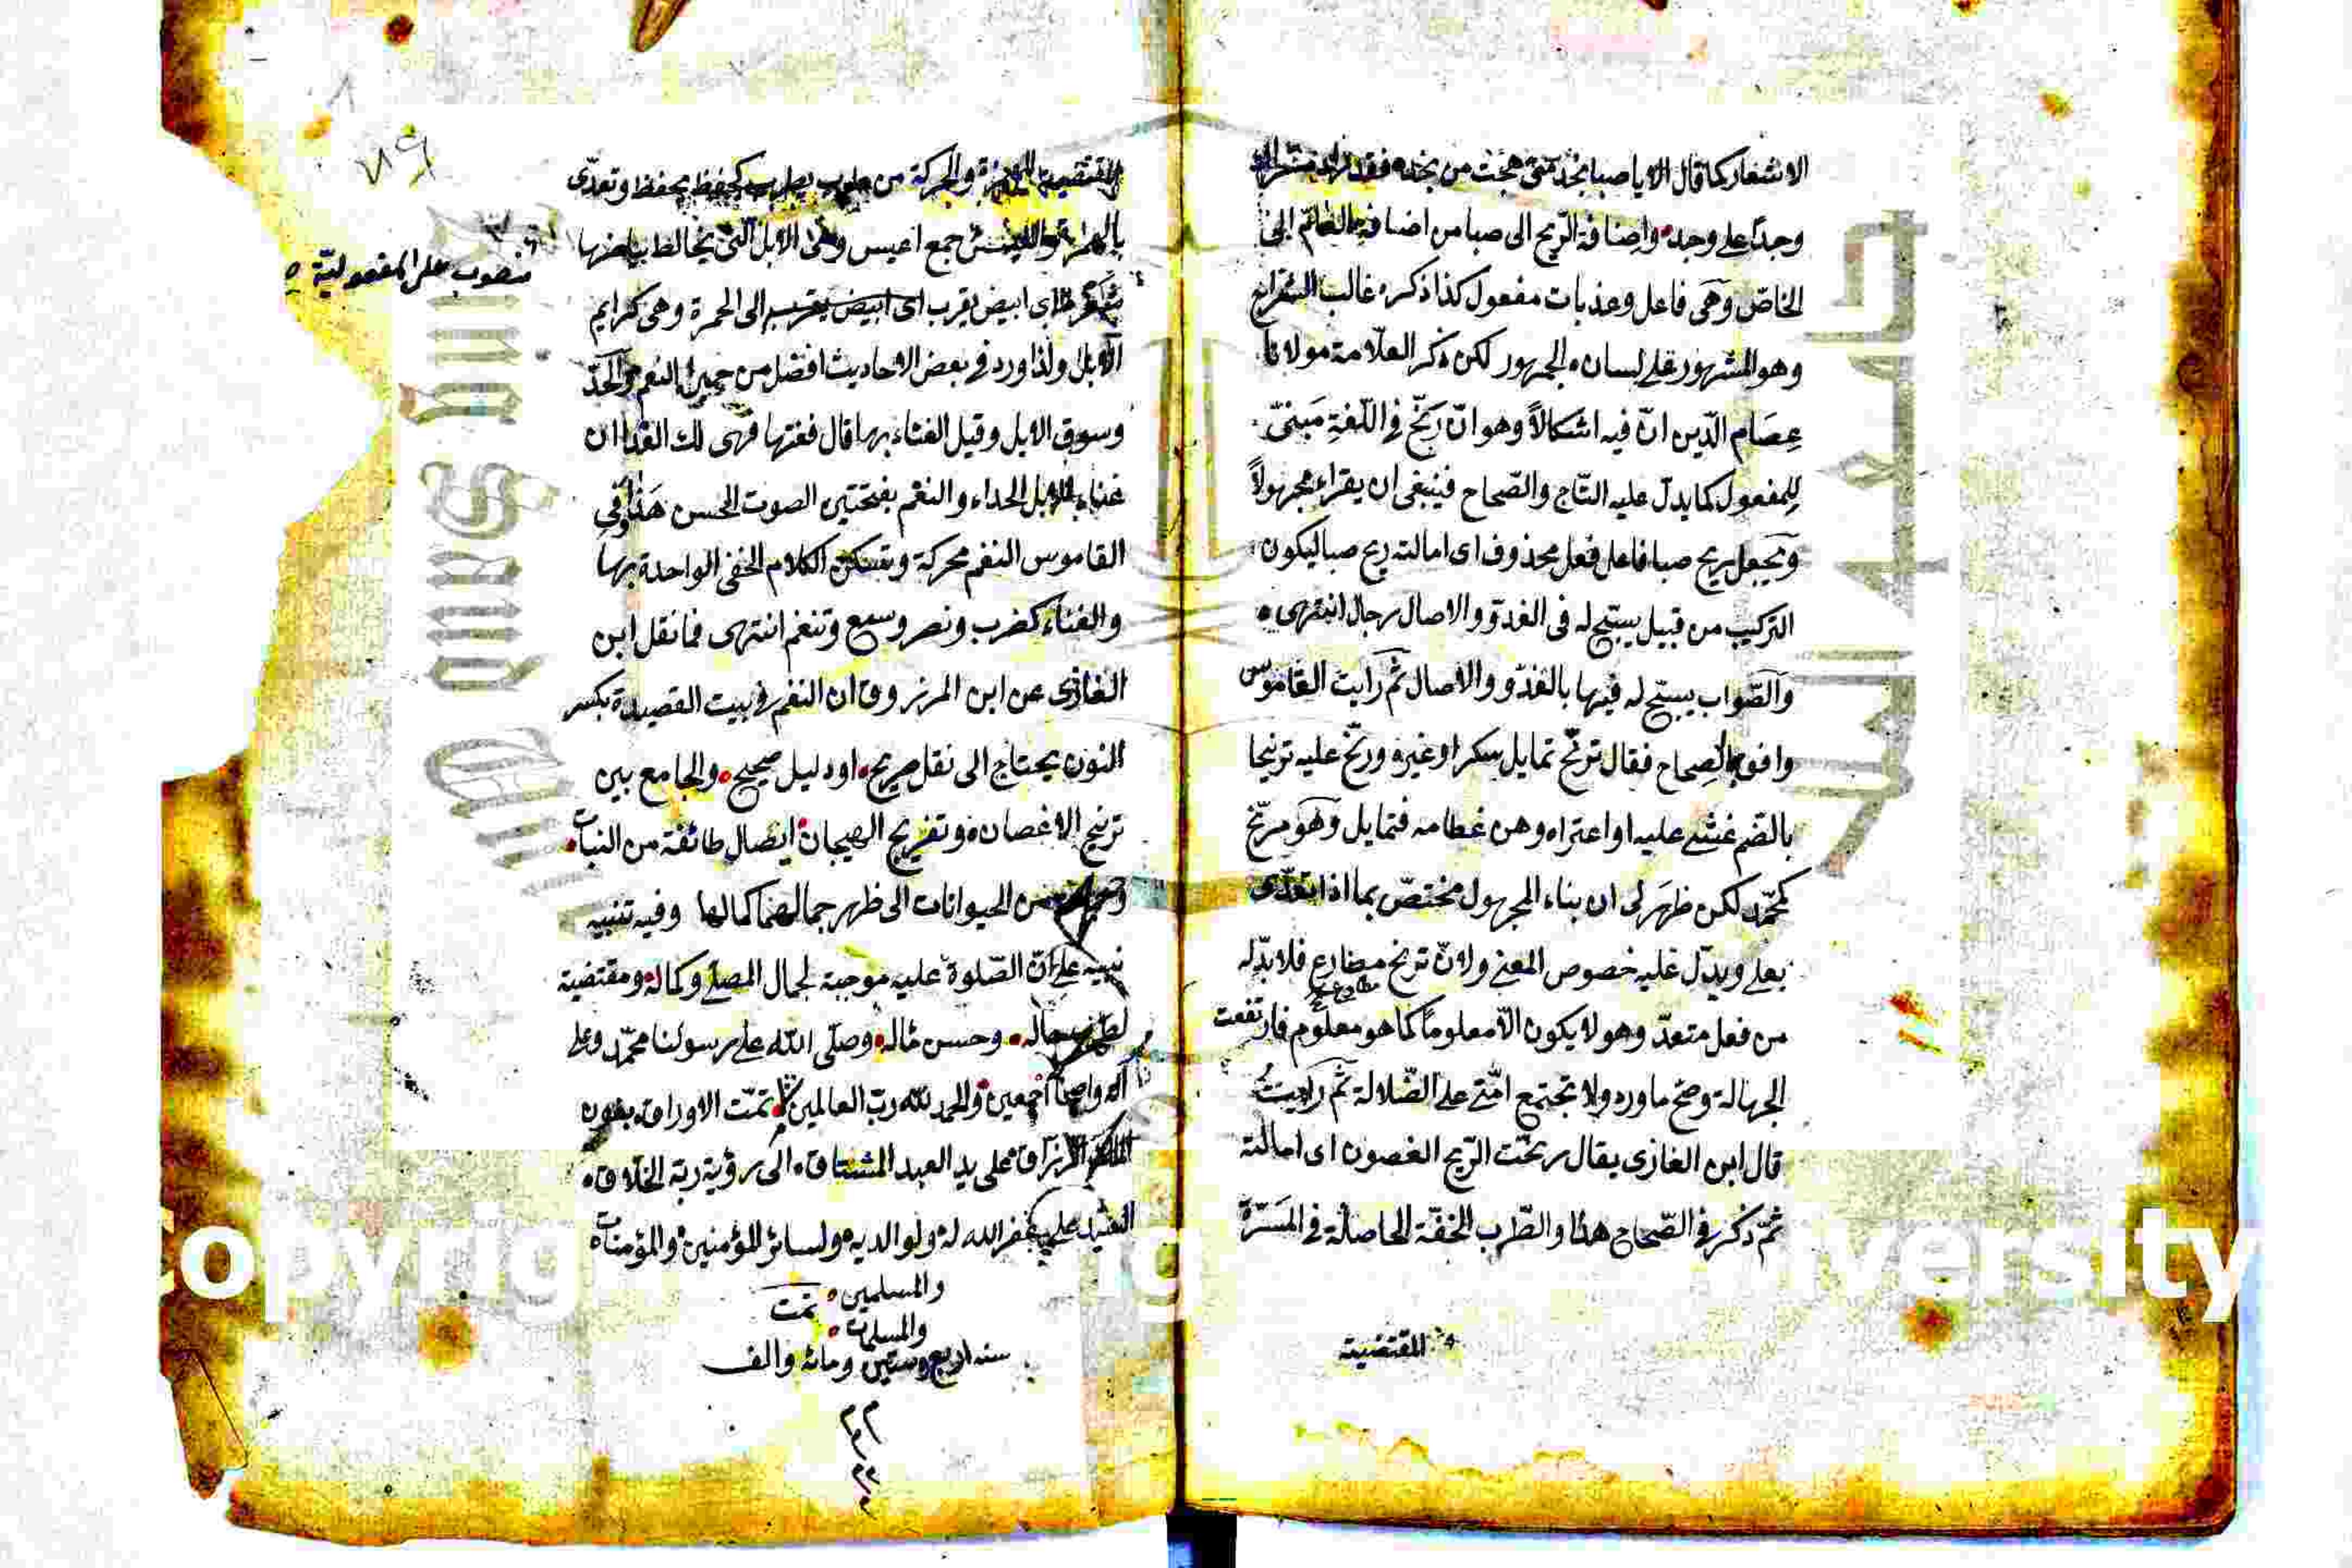 الاشعار كما قال الا يا صبا نجد متى هجت من نجد فقد زاد
وجدًا على وجد واضافة الريح الى صبا من اضافة العام الى
الخاصّ وهى فاعل وعذبات مفعول كذا ذكره غالب الشراح
وهو المشهور على لسان الجمهور لكن ذكر العلّامة مولانا
عصام الدّين انّ فيه اشكالاً وهو انّ رنّح في اللّغة مبنىّ
للمفعول كما يدل عليه التّاج والصّحاح فينبغى ان يقراء مجهولاً
ويجعل ريح صبا فاعل فعل محذوف اى امالته ريح صبا ليكون
التركيب من قبيل يسبّح له فى الغدوّ والاصال رجال انتهى
والصّواب يسبّح له فيها بالغدوّ والاصال ثم رايت القاموس
وافق الصحاح فقال ترنّح تمايل سكرا وغيره ورنّح عليه ترنيحا
بالضّم غشى عليه او اعتراه وهن عظامه فتمايل وهو مرنّح
كمحمّد لكن ظهر لى ان بناء المجهول مختصّ بما اذا تعدّى
بعلى ويدلّ عليه خصوص المعنى ولانّ ترنح مضارع فلا بدّ له
مطاوع
من فعل متعدّ وهو لا يكون الّا معلوماً كما هو معلوم فارتفعت
الجهالة وصحّ ما ورد ولا تجتمع امّتى على الضّلالة ثم رايت
قال ابن الغازى يقال رنّحت الرّيح الغصون اى امالته
ثمّ ذكر فى الصّحاح هذا والطّرب الخفّة الحاصلة فى المسرّة
المقتضية
المقتضية والحركة من طرب يطرب كحفظ يحفظ وتعدّى
جمع اعيس وهى الابل التى يخالط بياضها
منصوب على المفعوليّة
اى ابيض يقرب اى ابيض يقرب الى الحمرة وهى كرايم
الابل ولذا ورد فى بعض الاحاديث افضل من حمر النعم
وسوق الابل وقيل الغناء بها قال فغنها فهى لك الفدا ان
غناء الابل الحداء والنغم بفتحتين الصوت الحسن هذا وفى
القاموس النغم محركة وتسكن الكلام الخفى الواحدة بها
والغناء كضرب ونصر وسمع وتنغم انتهى فما نقل ابن
الغازى عن ابن المرزوق ان النغم فى بيت القصيدة بكسر
النون يحتاج الى نقل صريح او دليل صحيح والجامع بين
ترنيح الاغصان وتفريح الهيجان ايصال طائفة من النبات
من الحيوانات الى ظهر جمالهما كمالها وفيه تنبيه
نبيه على انّ الصّلوة عليه موجبة لجمال المصلّى وكماله ومقتضية
حاله وحسن مآله وصلّى الله على رسولنا محمّد وعلى
آله واصحابه اجمعين والحمد لله ربّ العالمين تمّت الاوراق بعون
الرزاق على يد العبد المشتاق الى رؤية ربّه الخلّاق
على غفر الله له ولوالديه ولسائر المؤمنين والمؤمنات
والمسلمين تمت
والمسلمات
سنه اربع وستين ومائه والف